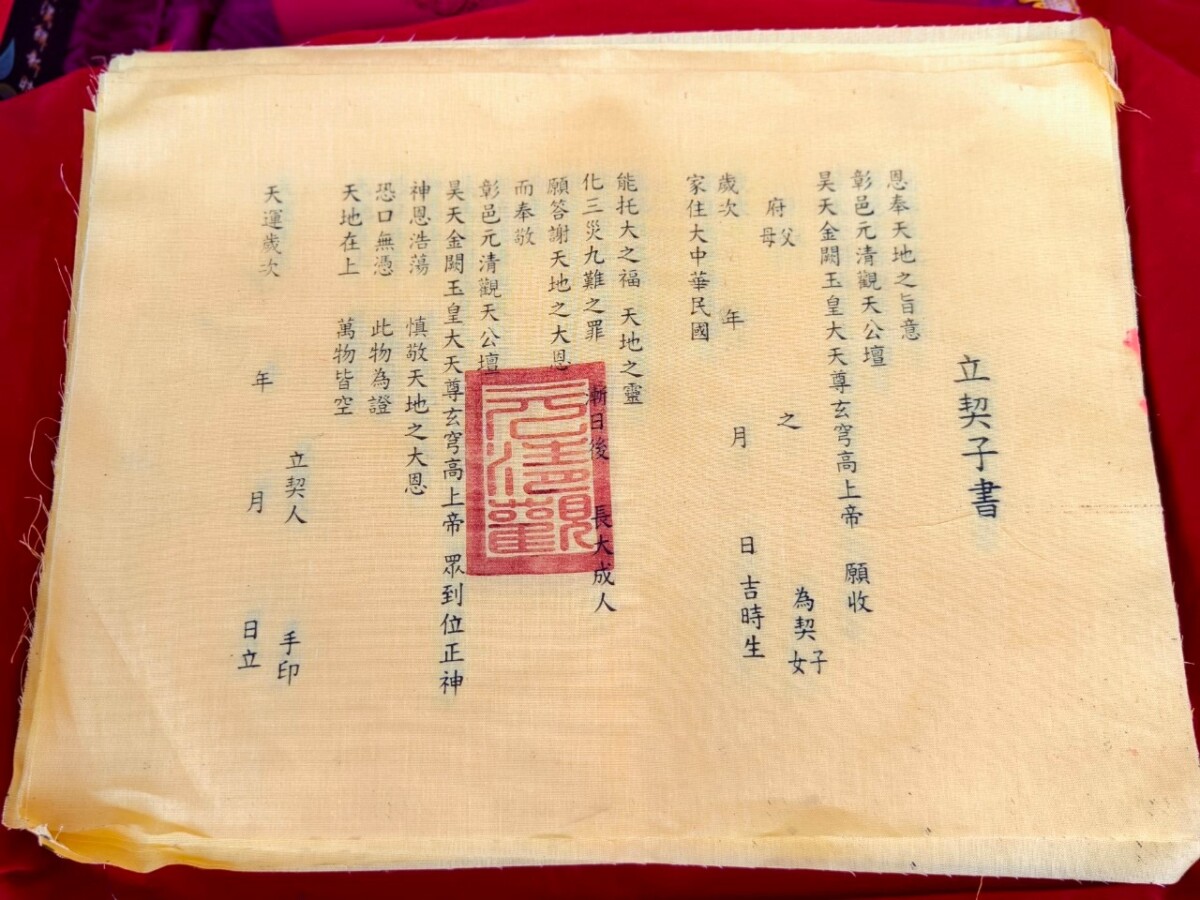 立契子書
恩奉天地之旨意
彰邑元清觀天公壇
昊天金闕玉皇大天尊玄穹高上帝 願收
府 父母 之 為契 子女
歲次 年 月 日 吉時生
家住大中華民國
能托大之福 天地之靈
化三災九難之罪 漸日後 長大成人
願答謝天地之大恩
而奉敬
彰邑元清觀天公壇
昊天金闕玉皇大天尊玄穹高上帝 眾到位正神
神恩浩蕩 慎敬天地之大恩
恐口無憑 此物為證
天地在上 萬物皆空
立契人 手印
天運歲次 年 月 日立
元清觀